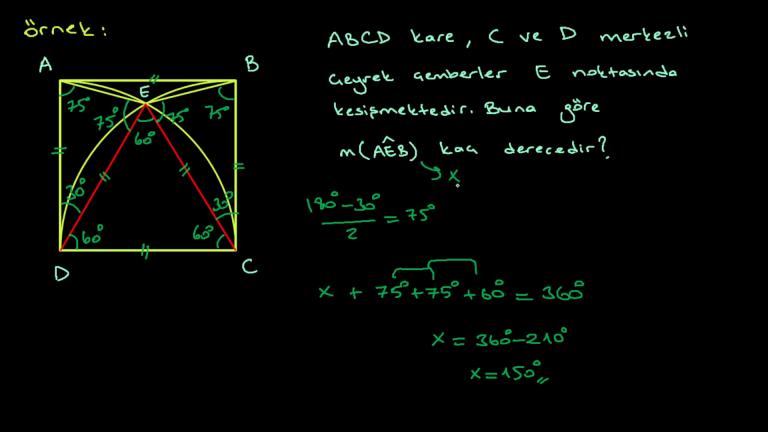 örnek:
ABCD kare, C ve D merkezli
çeyrek çemberler E noktasında
kesişmektedir. Buna göre
m(AÊB) kaç derecedir?
x
A
B
E
75°
75°
75°
75°
60°
30°
30°
60°
60°
D
C
180°-30°
2
= 75°
x + 75°+75°+60° = 360°
x = 360°-210°
x=150°